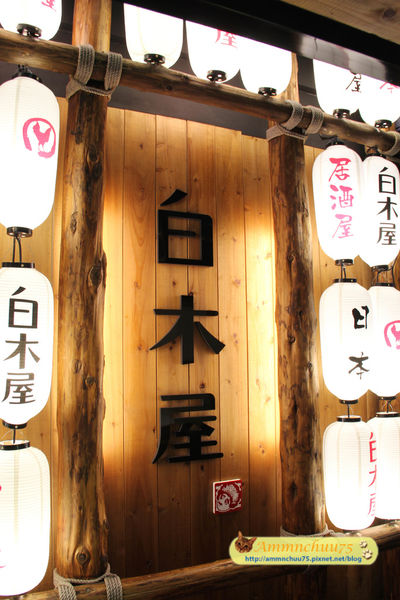 白木屋
白木屋
居酒屋
白木屋
日本
屋
屋
本
木屋
Ammnchuu75
http://ammnchuu75.pixnet.net/blog